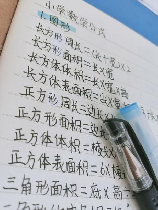 小学数学公式
1.图形
长方形周长=(长+宽)×2
长方形面积=长×宽
长方体体积=长×宽
长方体表面积=
正方形周长=边长×
正方形面积=边
正方体体积=棱长
正方体表面积=棱
三角形面积=底×高÷